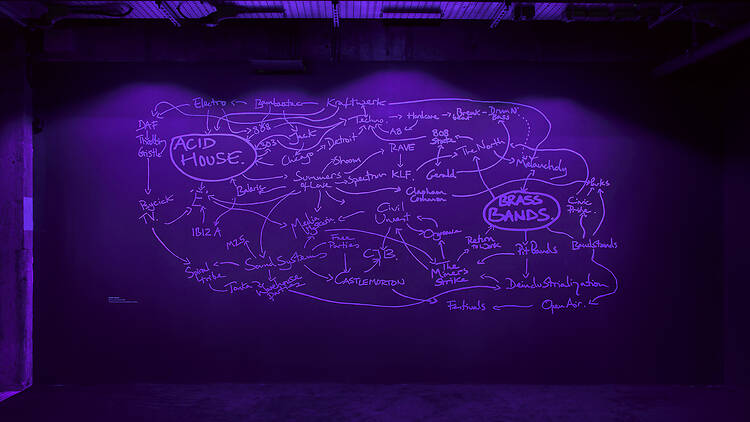 Electro
Kraftwerk
DAF
808
Jack
Techno
Hardcore
Break-
beat
Drum N'
Bass
ACID
HOUSE.
303
Detroit
Chicago
808
State
The North
Melancholy
RAVE
Shoom
Summers
of Love
Spectrum
KLF.
Gerald
Clapham
Common
Balearic
E
IBIZA
BRASS
BANDS.
Civic
Pride.
Media
Hysteria
Civil
Unrest
Orgreave
Return
to Work
Pit Bands
Bandstands
Free
Parties
M25
Sound Systems
C.J.B.
Spiral
Tribe
Warehouse
Parties
CASTLEMORTON
The
Miners
Strike
Deindustrialization
Festivals
Open Air.